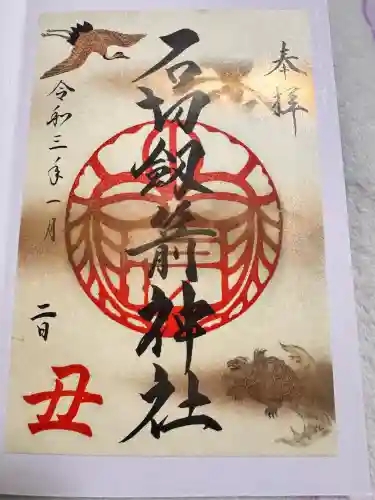 奉拝
石切劔箭神社
令和三年一月
二日
丑